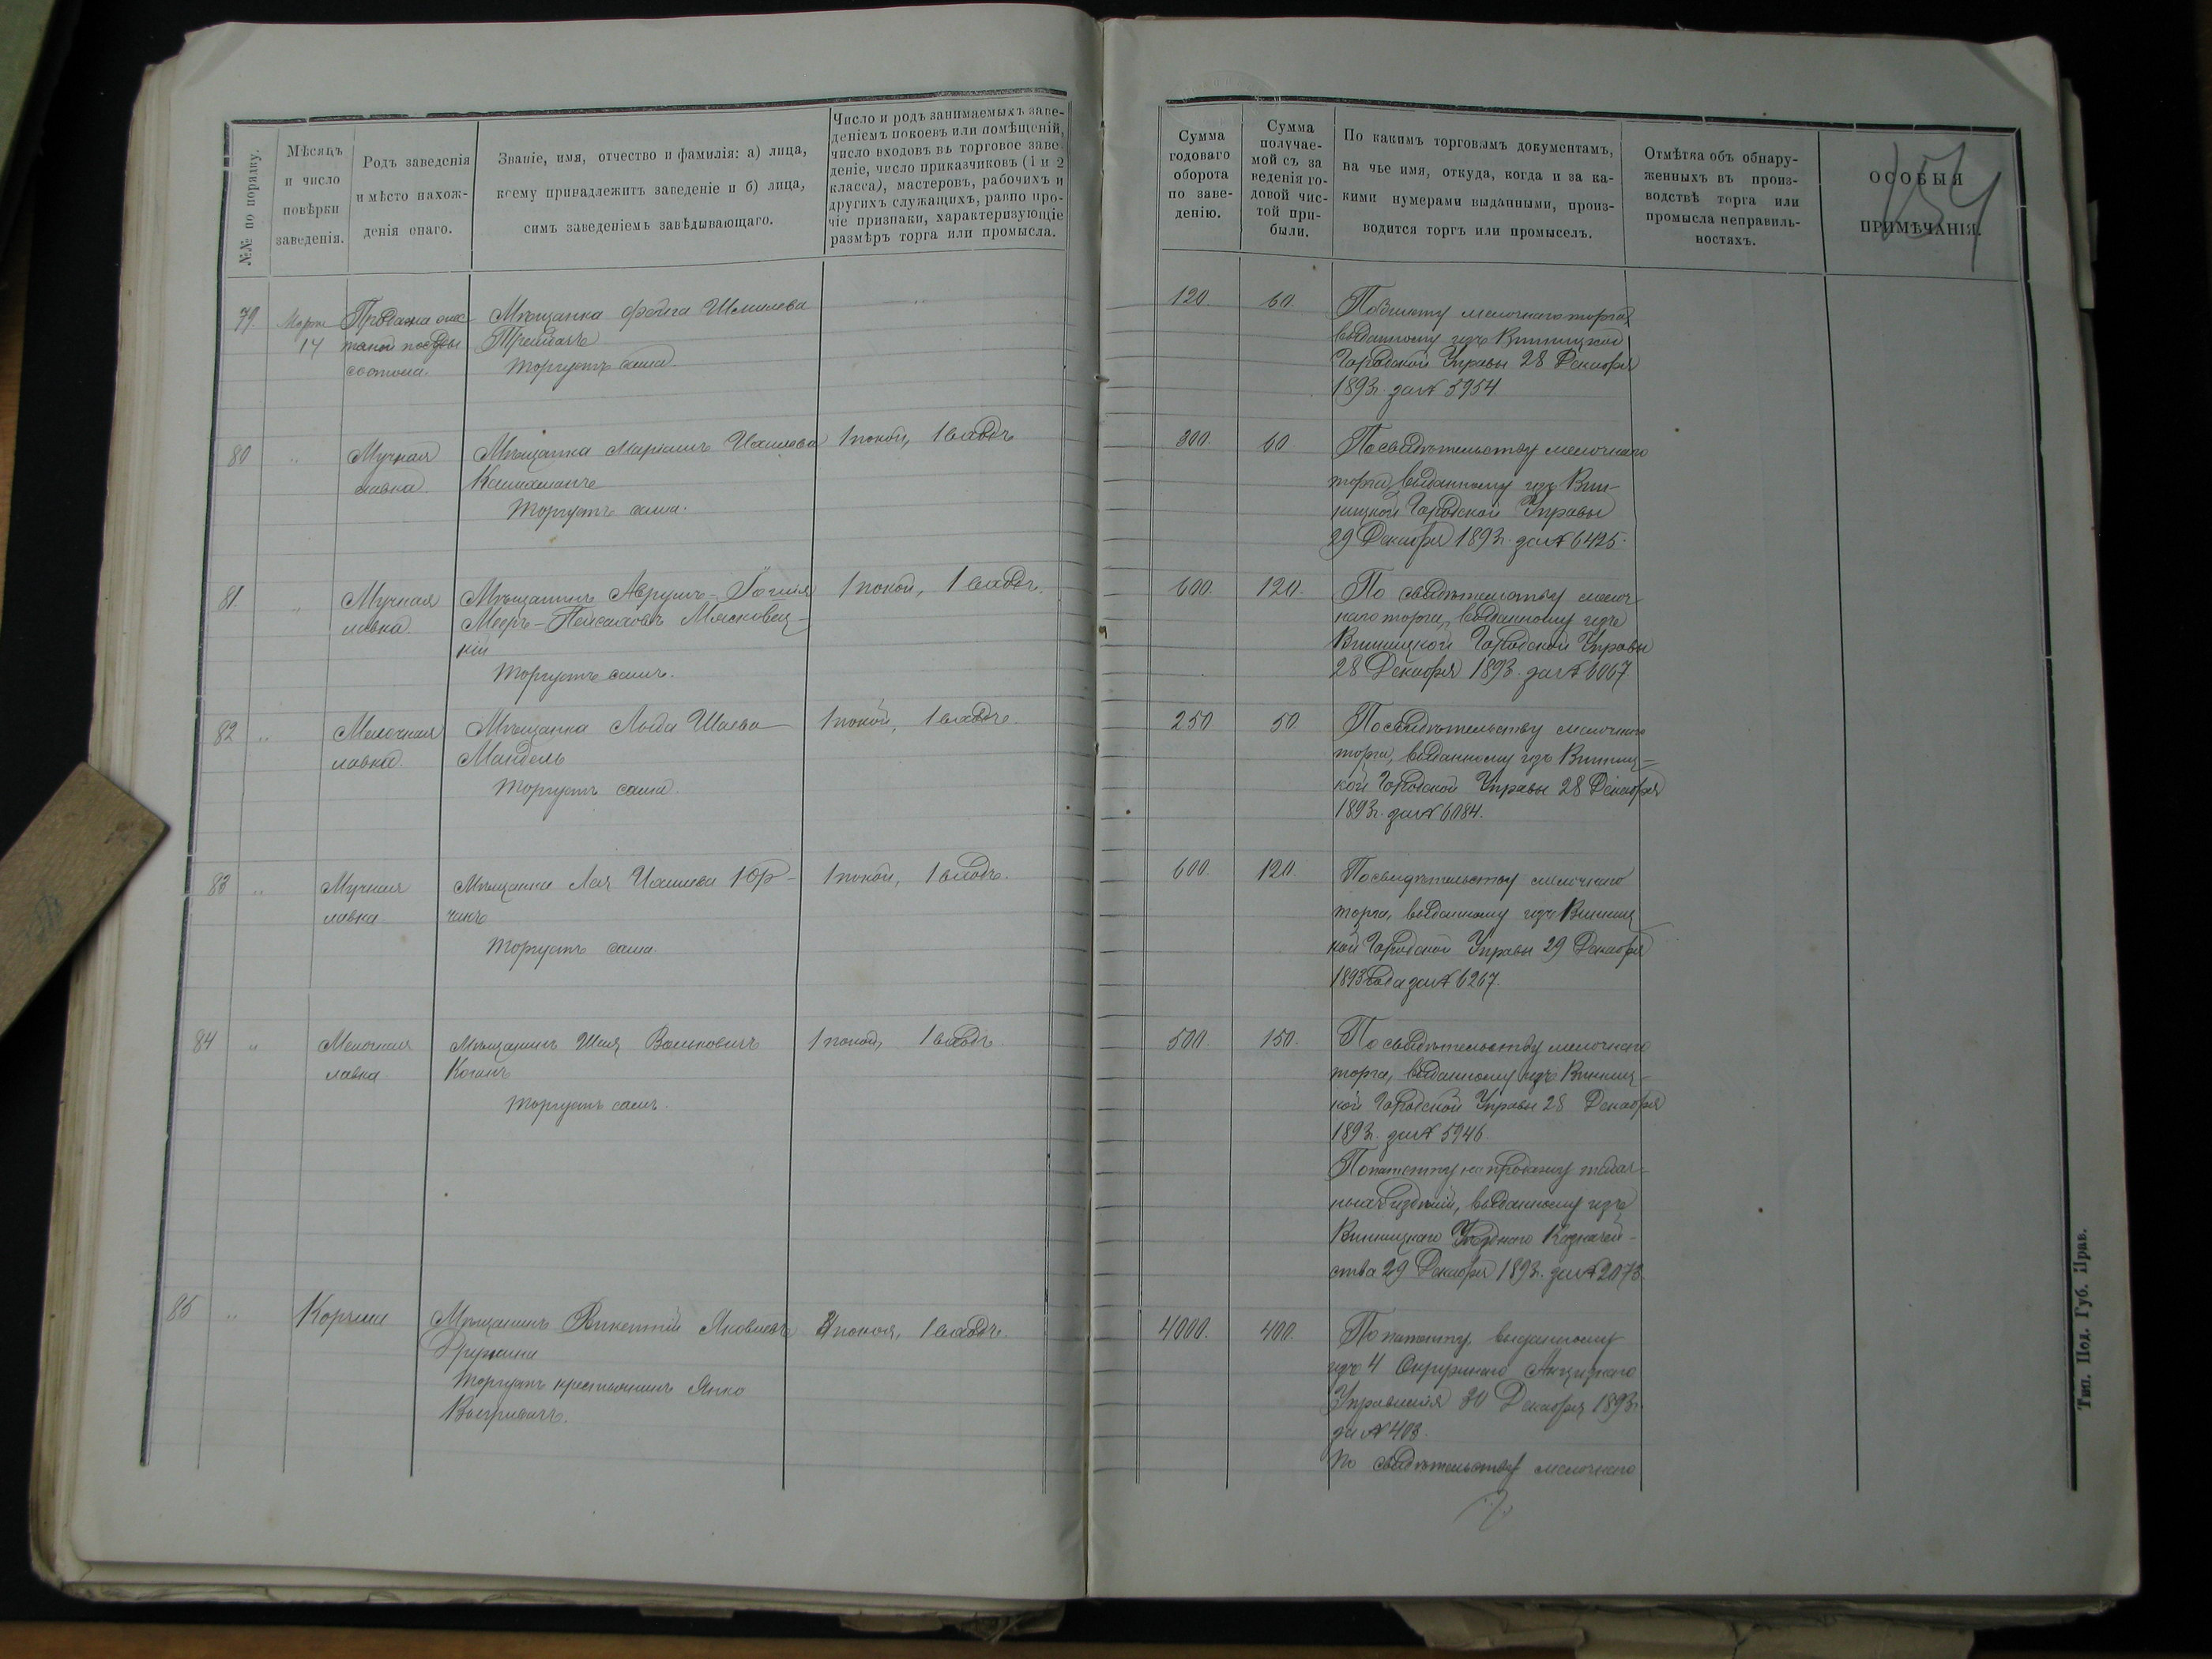 №№ по порядку.
Мѣсяцъ
и число
повѣрки
заведенія.
Родъ заведенія
и мѣсто нахож-
денія онаго.
Званіе, имя, отчество и фамилія: а) лица,
коему принадлежитъ заведеніе и б) лица,
симъ заведеніемъ завѣдывающаго.
Число и родъ занимаемыхъ заве-
деніемъ покоевъ или помѣщеній,
число входовъ въ торговое заве-
деніе, число приказчиковъ (1 и 2
класса), мастеровъ, рабочихъ и
другихъ служащихъ, равно про-
чіе признаки, характеризующіе
размѣръ торга или промысла.
Сумма
годоваго
оборота
по заве-
денію.
Сумма
получае-
мой съ за
веденія го-
довой чис-
той при-
были.
По какимъ торговымъ документамъ,
на чье имя, откуда, когда и за ка-
кими нумерами выданными, произ-
водится торгъ или промыселъ.
Отмѣтка объ обнару-
женныхъ въ произ-
водствѣ торга или
промысла неправиль-
ностяхъ.
ОСОБЫЯ
ПРИМѢЧАНІЯ.
154
79. Марта 14
Продажа
посуды
Мѣщанка Фейга Шмилева
Торгуетъ сама.
120. 60.
По билету мелочнаго торга,
выданному изъ Винницкой
Городской Управы 28 Декабря
1893г. за № 5954
80 "
Мучная
лавка.
Мѣщанка Маріямъ
Торгуетъ сама.
1 покой, 1 входъ
300. 60.
По свидѣтельству мелочнаго
торга, выданному изъ Вин-
ницкой Городской Управы
29 Декабря 1893г. за № 6425.
81. "
Мучная
лавка.
Мѣщанинъ Аврумъ-
Мееръ-Пейсаховъ Мясковец-
кій
Торгуетъ самъ.
1 покой, 1 входъ.
600. 120.
По свидѣтельству мелоч-
наго торга, выданному изъ
Винницкой Городской Управы
28 Декабря 1893г. за № 6067
82 "
Мелочная
лавка.
Мѣщанка Шаева
Мандель
Торгуетъ сама.
1 покой, 1 входъ.
250 50.
По свидѣтельству мелочнаго
торга, выданному изъ Винниц-
кой Городской Управы 28 Декабря
1893г. за № 6084.
83 "
Мучная
лавка
Мѣщанка Лая Юр-
чакъ
Торгуетъ сама.
1 покой, 1 входъ.
600. 120.
По свидѣтельству мелочнаго
торга, выданному изъ Винниц
кой Городской Управы 29 Декабря
1893 года за № 6267.
84 "
Мелочная
лавка
Мѣщанинъ Шая
Коганъ
Торгуетъ самъ.
1 покой, 1 входъ.
500. 150.
По свидѣтельству мелочнаго
торга, выданному изъ Винниц-
кой Городской Управы 28 Декабря
1893г. за № 5946.
По патенту на продажу табач-
ныхъ издѣлій, выданному изъ
Винницкаго Уѣзднаго Казначей-
ства 29 Декабря 1893г. за № 2073
85 "
Корчма
Мѣщанинъ Викентій Яковлевъ
Торгуетъ крестьянинъ Янко
покоя, 1 входъ.
4000. 400.
По патенту, выданному
изъ 4 Окружнаго Акцизнаго
Управленія 30 Декабря 1893г.
за № 403.
По свидѣтельству мелочнаго
Тип. Под. Губ. Прав.